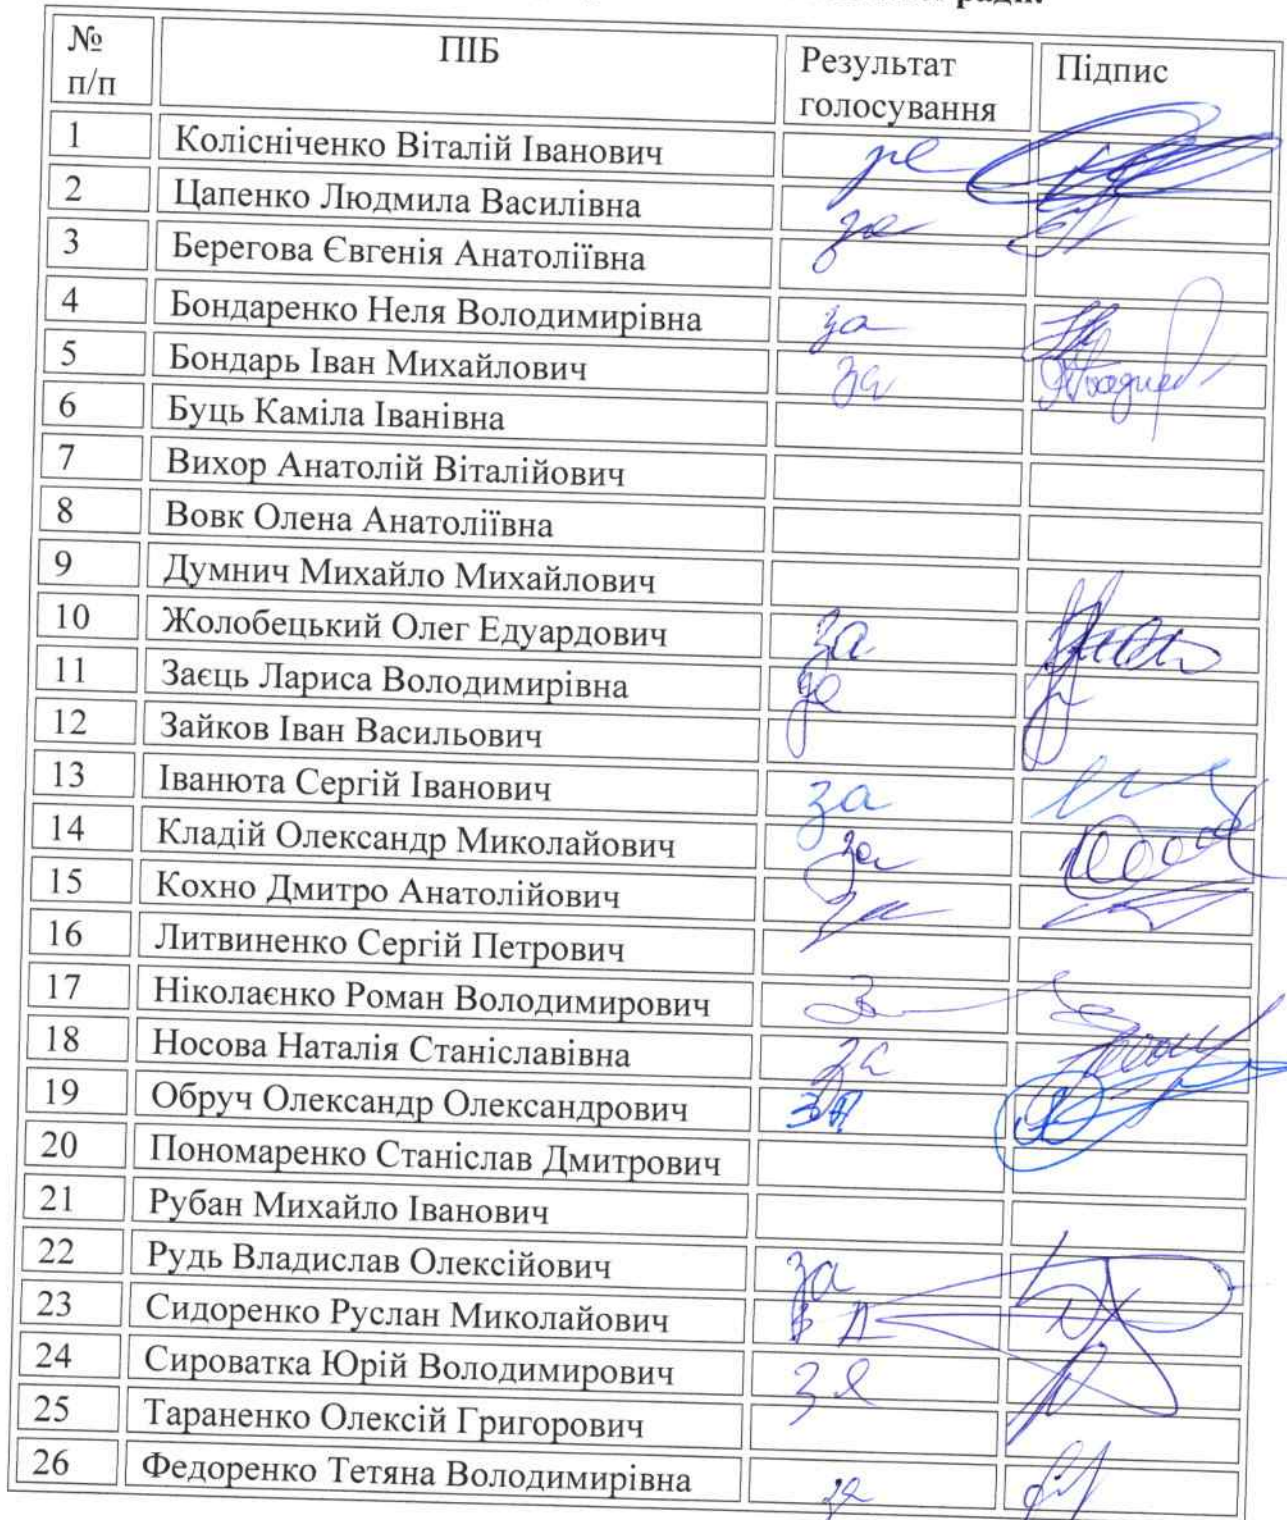 ради.
№ п/п ПІБ Результат голосування Підпис
1 Колісніченко Віталій Іванович за
2 Цапенко Людмила Василівна за
3 Берегова Євгенія Анатоліївна
4 Бондаренко Неля Володимирівна за
5 Бондарь Іван Михайлович за
6 Буць Каміла Іванівна
7 Вихор Анатолій Віталійович
8 Вовк Олена Анатоліївна
9 Думнич Михайло Михайлович
10 Жолобецький Олег Едуардович за
11 Заєць Лариса Володимирівна за
12 Зайков Іван Васильович
13 Іванюта Сергій Іванович за
14 Кладій Олександр Миколайович за
15 Кохно Дмитро Анатолійович за
16 Литвиненко Сергій Петрович
17 Ніколаєнко Роман Володимирович
18 Носова Наталія Станіславівна за
19 Обруч Олександр Олександрович за
20 Пономаренко Станіслав Дмитрович
21 Рубан Михайло Іванович
22 Рудь Владислав Олексійович за
23 Сидоренко Руслан Миколайович
24 Сироватка Юрій Володимирович за
25 Тараненко Олексій Григорович
26 Федоренко Тетяна Володимирівна за